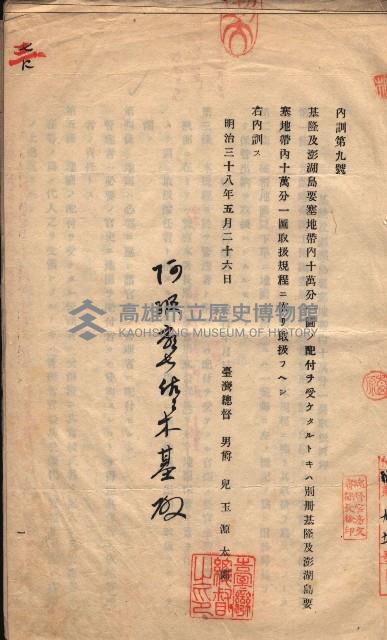 内訓第九號
基隆及澎湖島要塞地帶內十萬分一圖ノ配付ヲ受ケタルトキハ別册基隆及澎湖島要
塞地帶內十萬分一圖取扱規程ニ依リ取扱フヘシ
右內訓ス
明治三十八年五月二十六日
臺灣總督 男爵 兒玉源太郎
臺灣總督之印
佐々木基
高雄市立歷史博物館
KAOHSIUNG MUSEUM OF HISTORY
一